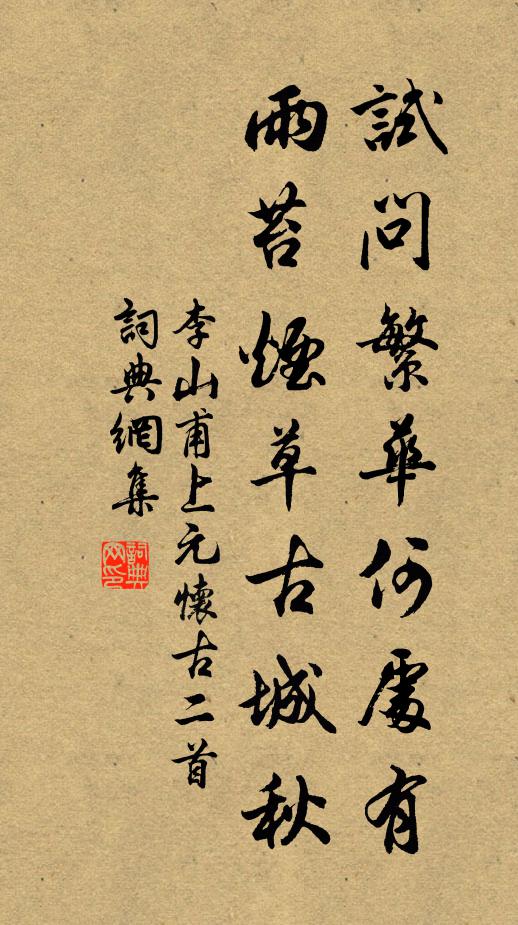 試問繁華何處有
雨苔煙草古城秋
李山甫上元懷古二首
詞典網集
詞典網印